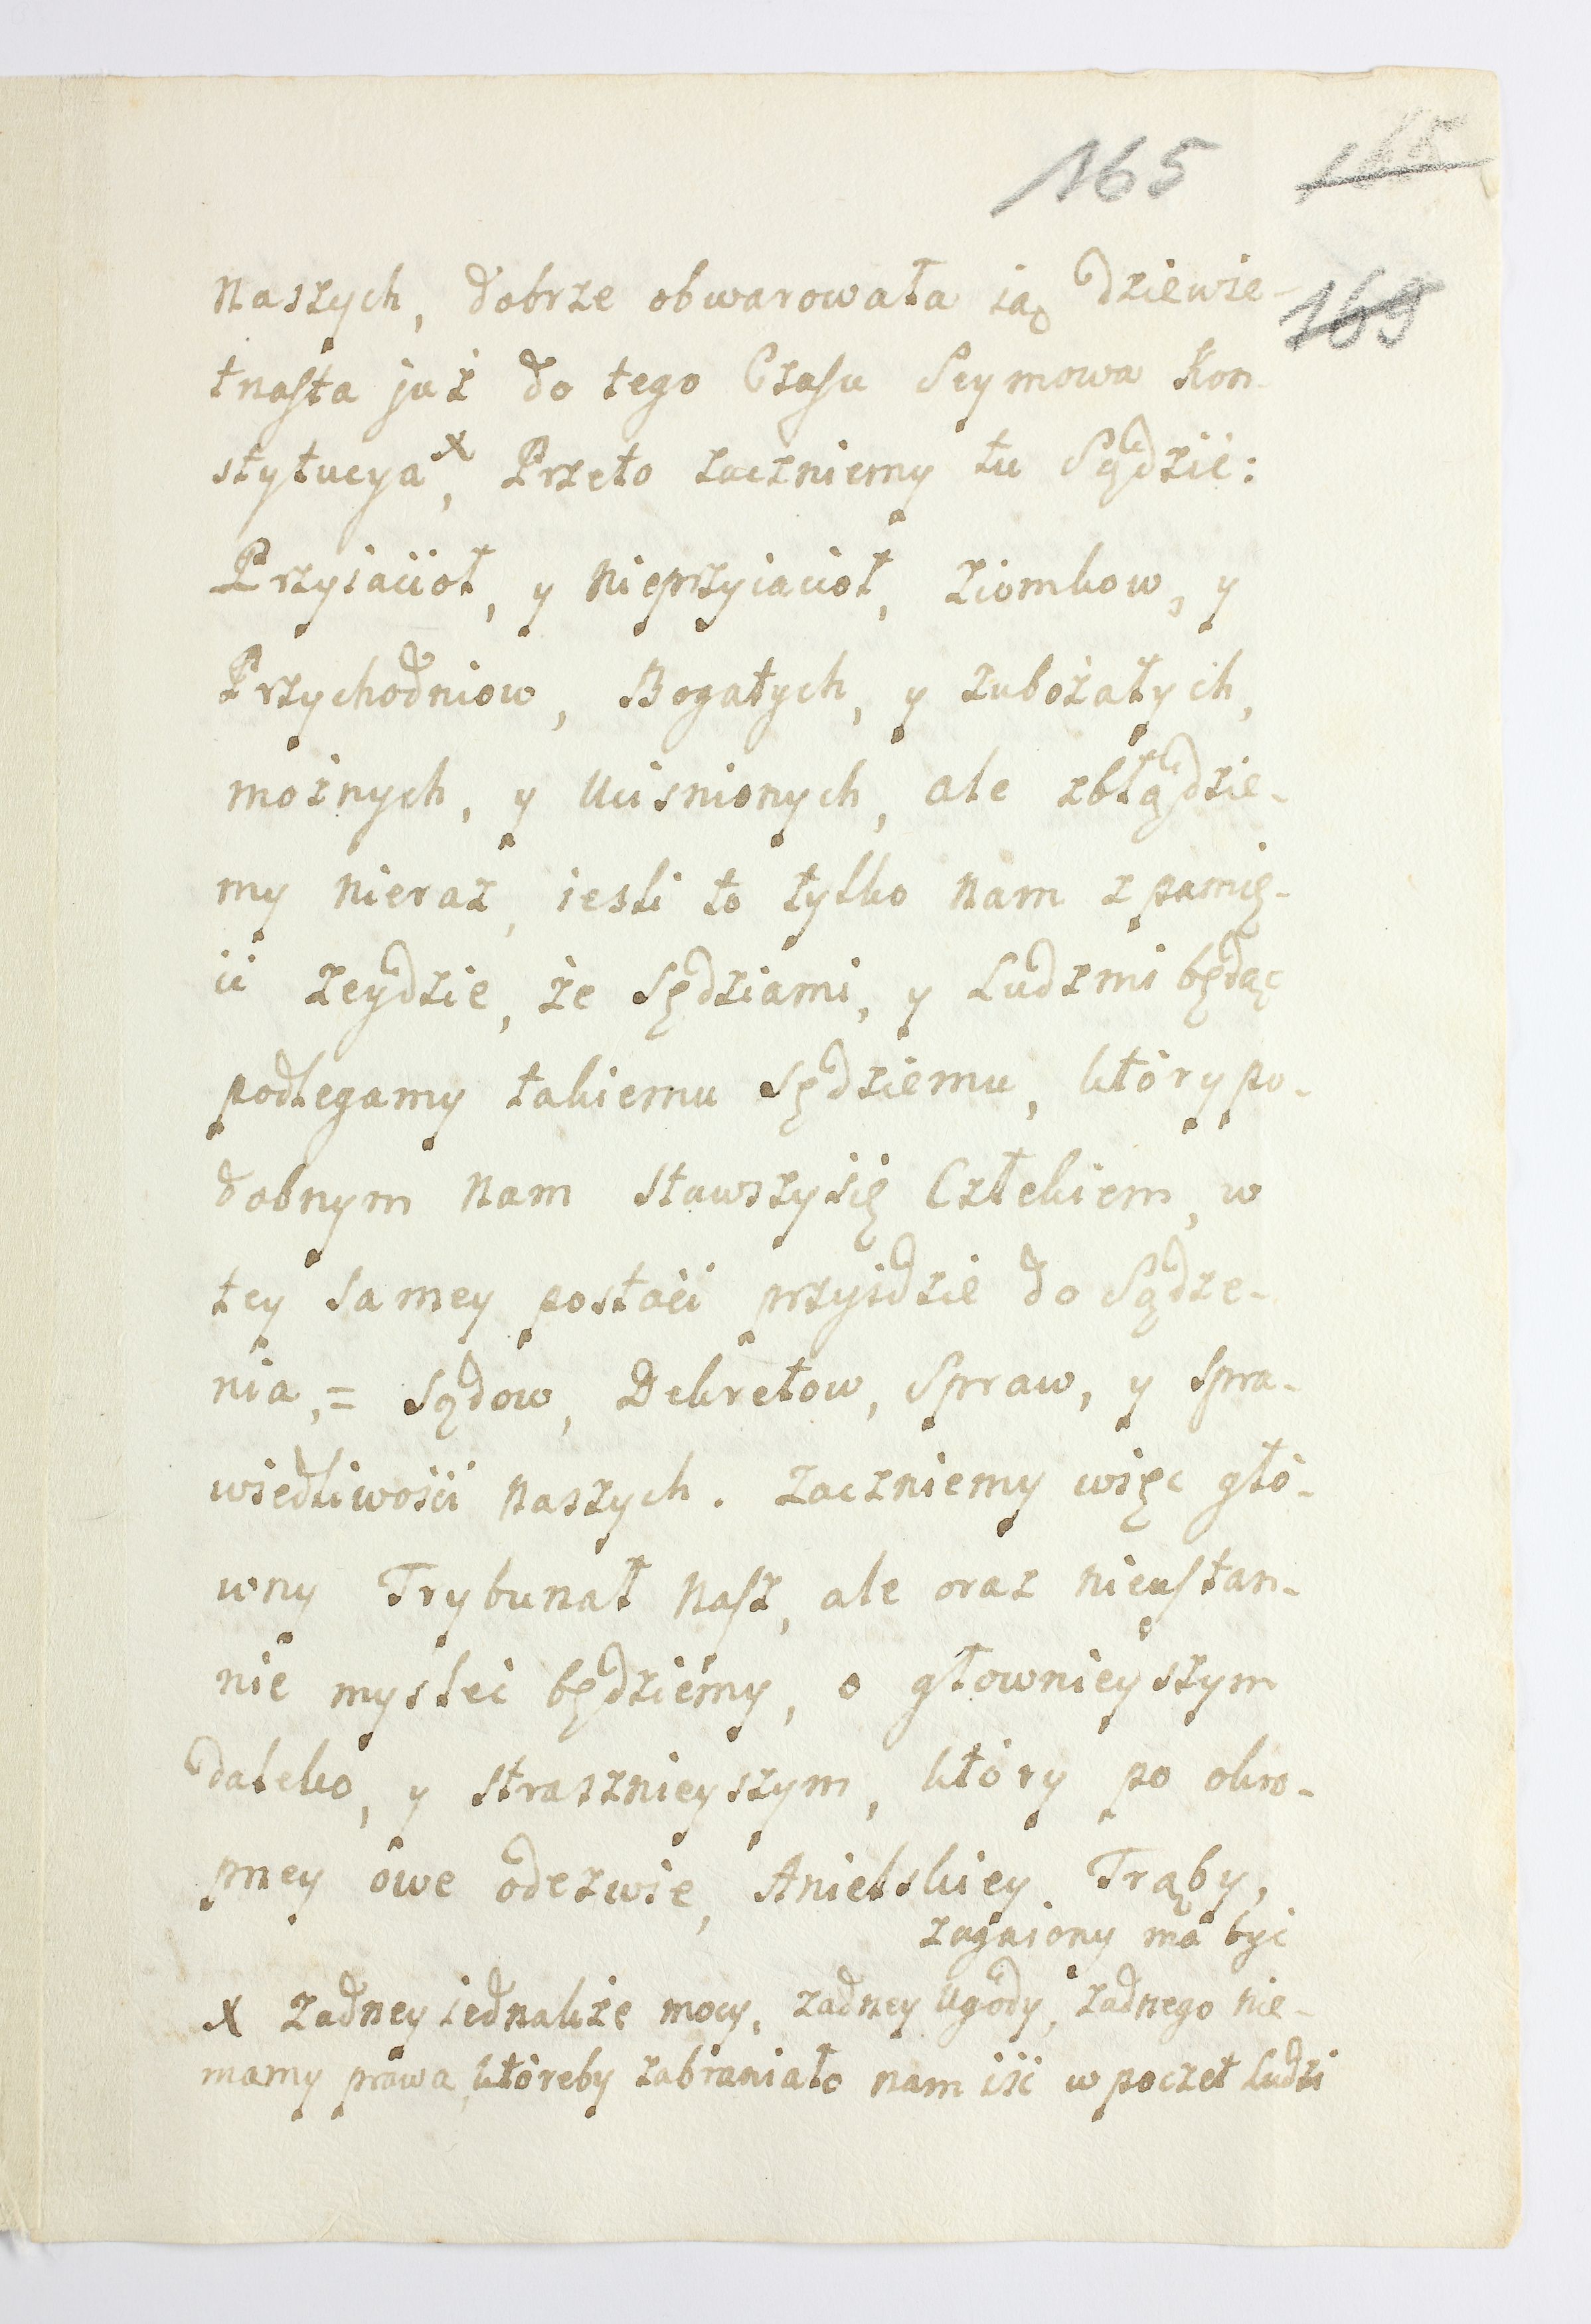 165 165
naszych, dobrze obwarowała ią dziewię-
165
tnasta już do tego Czasu Seymowa Kon-
stytucya x, Przeto zaczniemy tu Sądzić:
Przyiacioł, y nieprzyiacioł, ziomkow, y
Przychodniow, Bogatych, y zubożałych,
możnych, y uciśnionych, ale zbłądzie-
my nieraz, iesli to tylko nam z pamię-
ci zeydzie, że Sędziami, y Ludzmi będąc
podlegamy takiemu Sędziemu, który po-
dobnym nam stawszysię Człekiem, w
tey samey postaci przyidzie do Sądze-
nia, = Sądow, Dekretow, Spraw, y spra-
wiedliwości naszych. Zaczniemy więc głó-
wny Trybunał nasz, ale oraz nieustan-
nie mysleć będziemy, o głownieyszym
daleko, y strasznieyszym, który po okro-
pney owe odezwie, Anielskiey Trąby,
zagaiony ma być
x Żadney iednakże mocy, żadney ugody, żadnego nie-
mamy prawa, któreby zabraniało nam iść w poczet ludzi